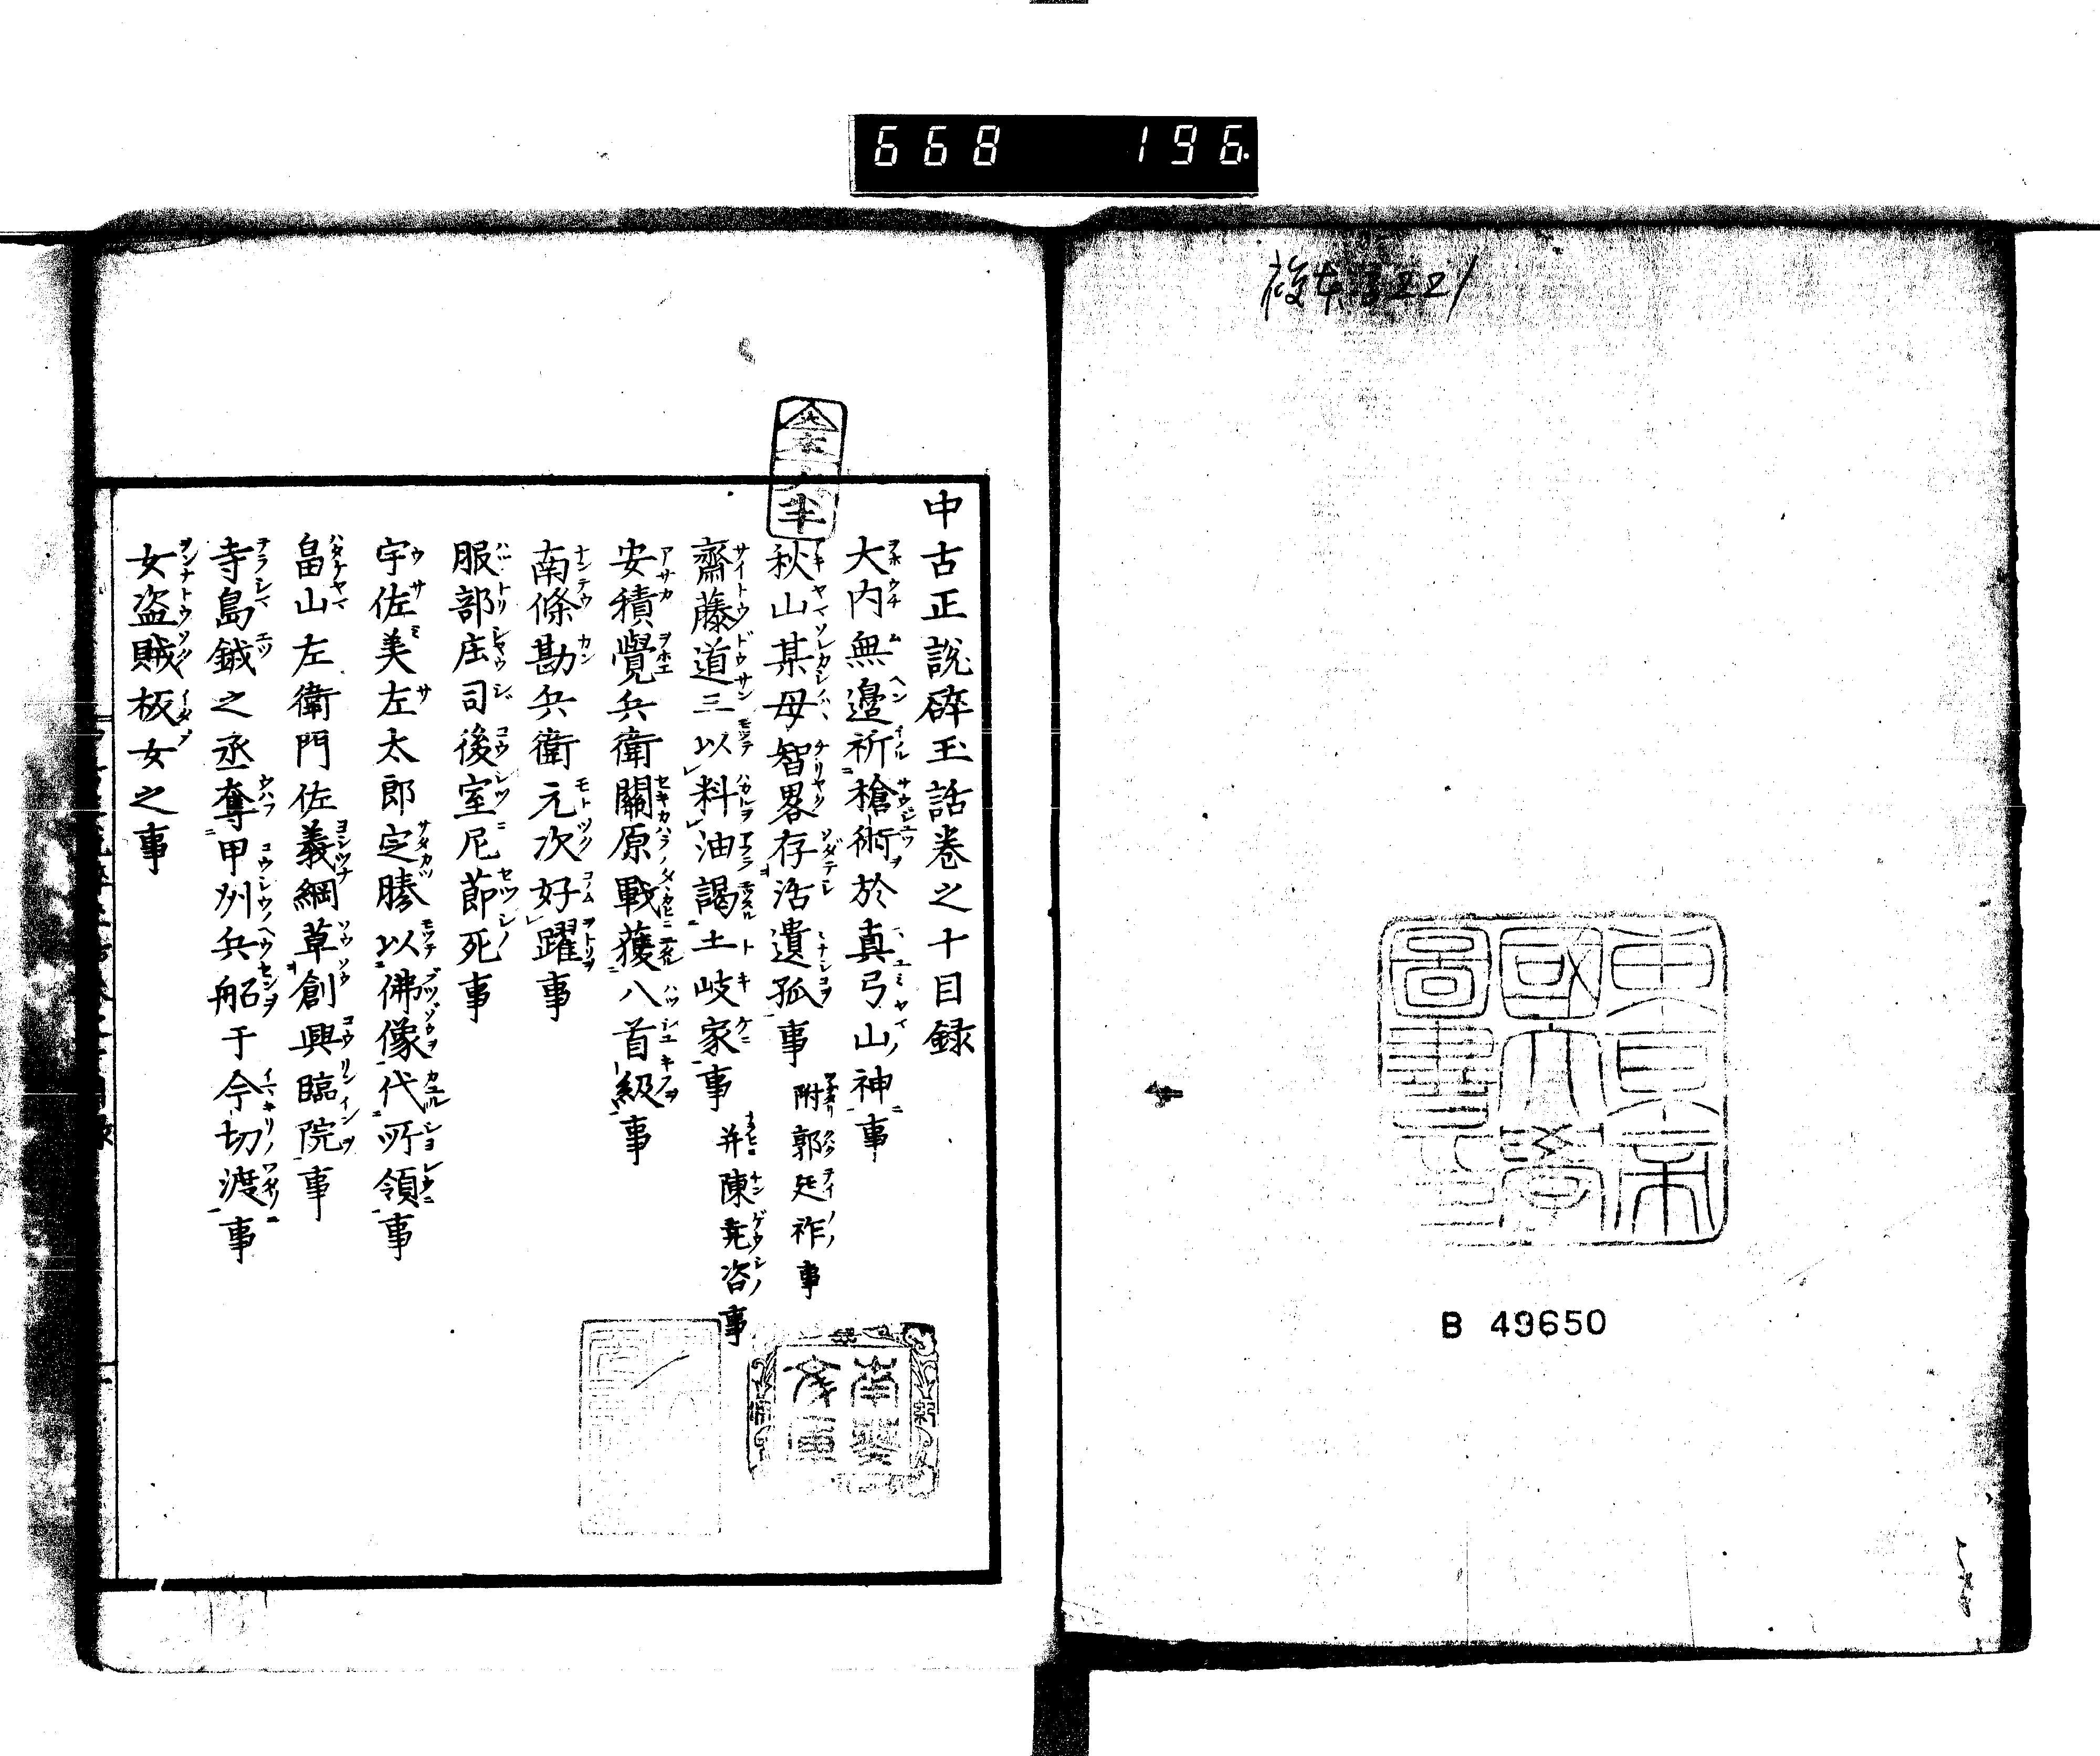 668 196.
東京帝國大學圖書印
B 49650
中古正說碎玉話卷之十目録
大内無邉祈槍術於真弓山神事
秋山某母智畧存活遺孤事 附郭廷祚事
齋藤道三以料油謁土岐家事 并陳尭咨事
安積覺兵衛關原戰獲八首級事
南條勘兵衛元次好躍事
服部庄司後室尼莭死事
宇佐美左太郎定勝以佛像代所領事
畠山左衛門佐義綱草創興臨院事
寺島鉞之丞奪甲州兵船于今切渡事
女盗賊板女之事
南葵文庫